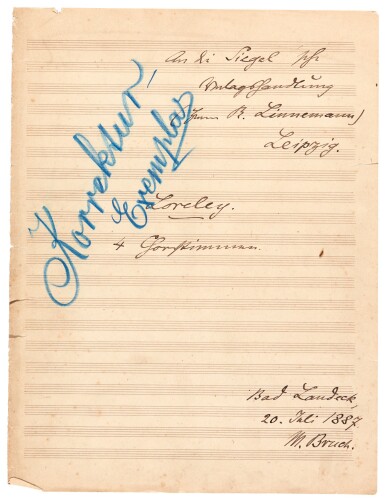 An die Siegel'sche
Verlagshandlung
(Herrn R. Linnemann)
Leipzig.
Korrektur
Exemplar
Loreley.
4 Chorstimmen.
Bad Landeck,
20. Juli 1887
M. Bruch.